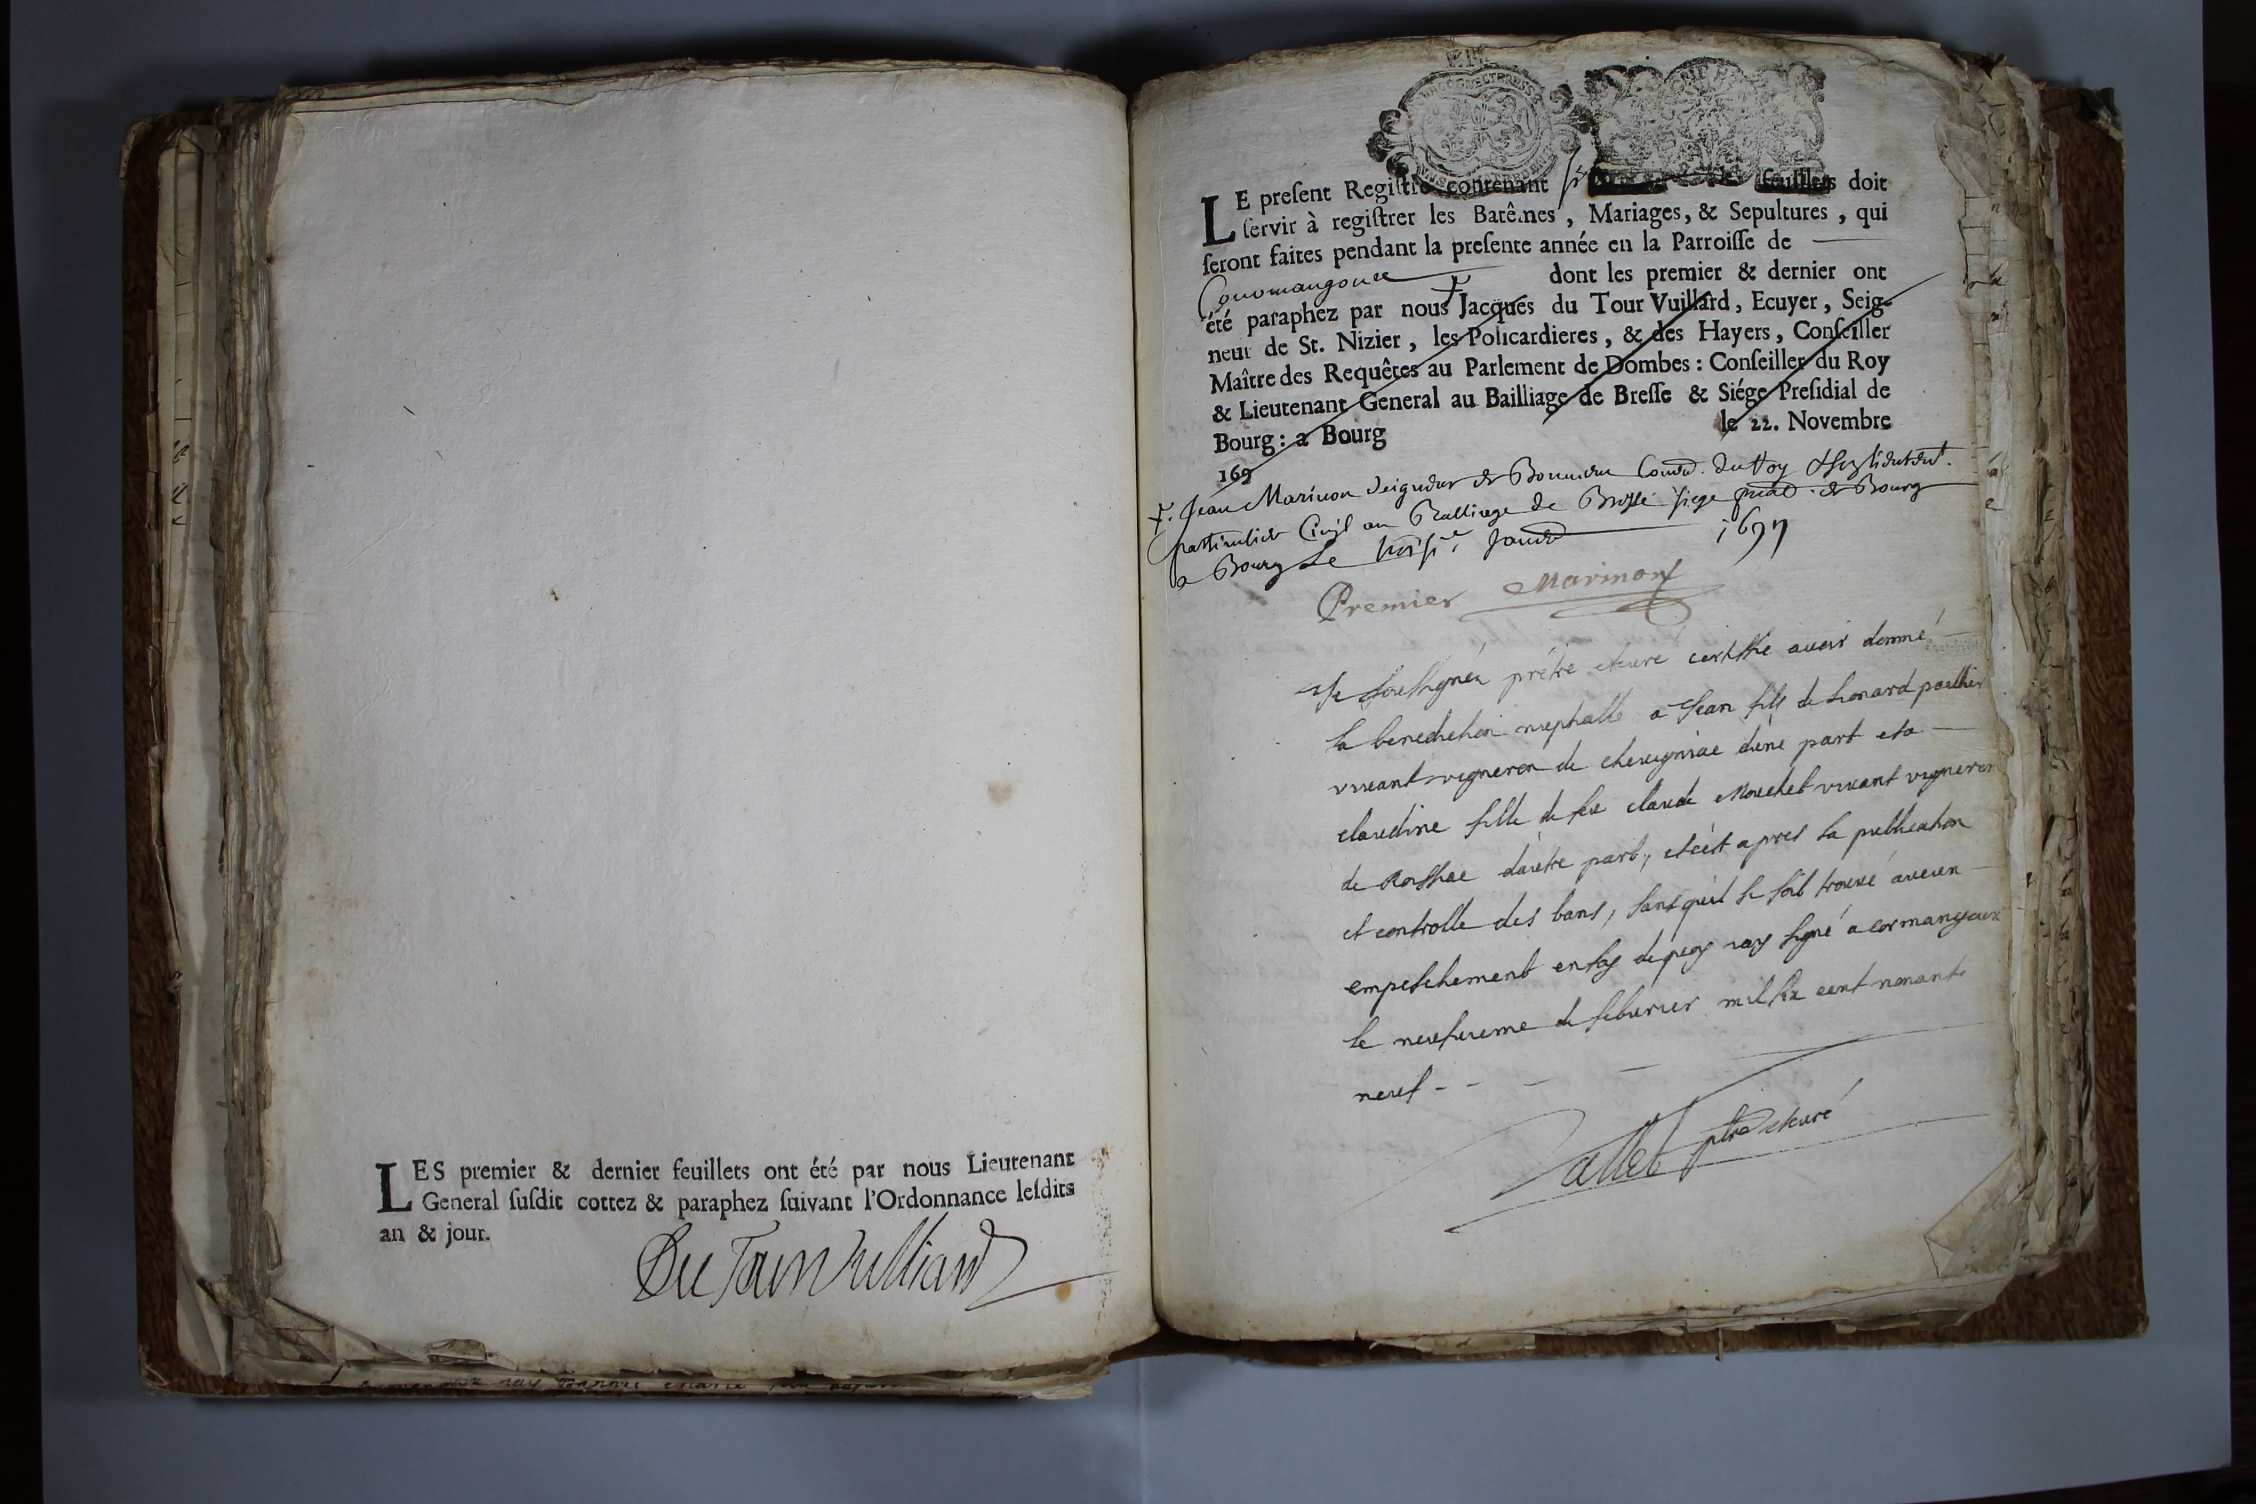 LES premier & dernier feuillets ont été par nous Lieutenant
General suſdit cottez & paraphez ſuivant l'Ordonnance leſdits
an & jour.
Du Tour Vuilliard
LE preſent Regiſtre contenant feuillets doit
ſervir à regiſtrer les Batêmes, Mariages, & Sepultures, qui
ſeront faites pendant la preſente année en la Parroiſſe de
Cormangoux dont les premier & dernier ont
été paraphez par nous Jacques du Tour Vuillard, Ecuyer, Seig-
neur de St. Nizier, les Policardieres, & des Hayers, Conſeiller
Maître des Requêtes au Parlement de Dombes: Conſeiller du Roy
& Lieutenant General au Bailliage de Breſſe & Siége Preſidial de
Bourg: a Bourg le 22. Novembre
169
Jean Marinon Seigneur de Conser. du Roy
particulier Civil au Balliage de Bresse siege de Bourg
a Bourg Le
Premier Marinon
Je soussignéz prêtre et curé certiffie avoir donné
la benediction nuptialle a Jean fils de Leonard
vivant vigneron de cheuigniae d'une part et a
claudine fille de feu claude Mouchet vivant vigneron
de Rossiae d'autre part, et c'est apres la publication
et controlle des bans, sans qu'il se soit trouvé aucun
empeschement en foy dequoy iay signé a cormangoux
le neufuieme de feburier mil six cent nonante
neuf - - - -
ptre et curé